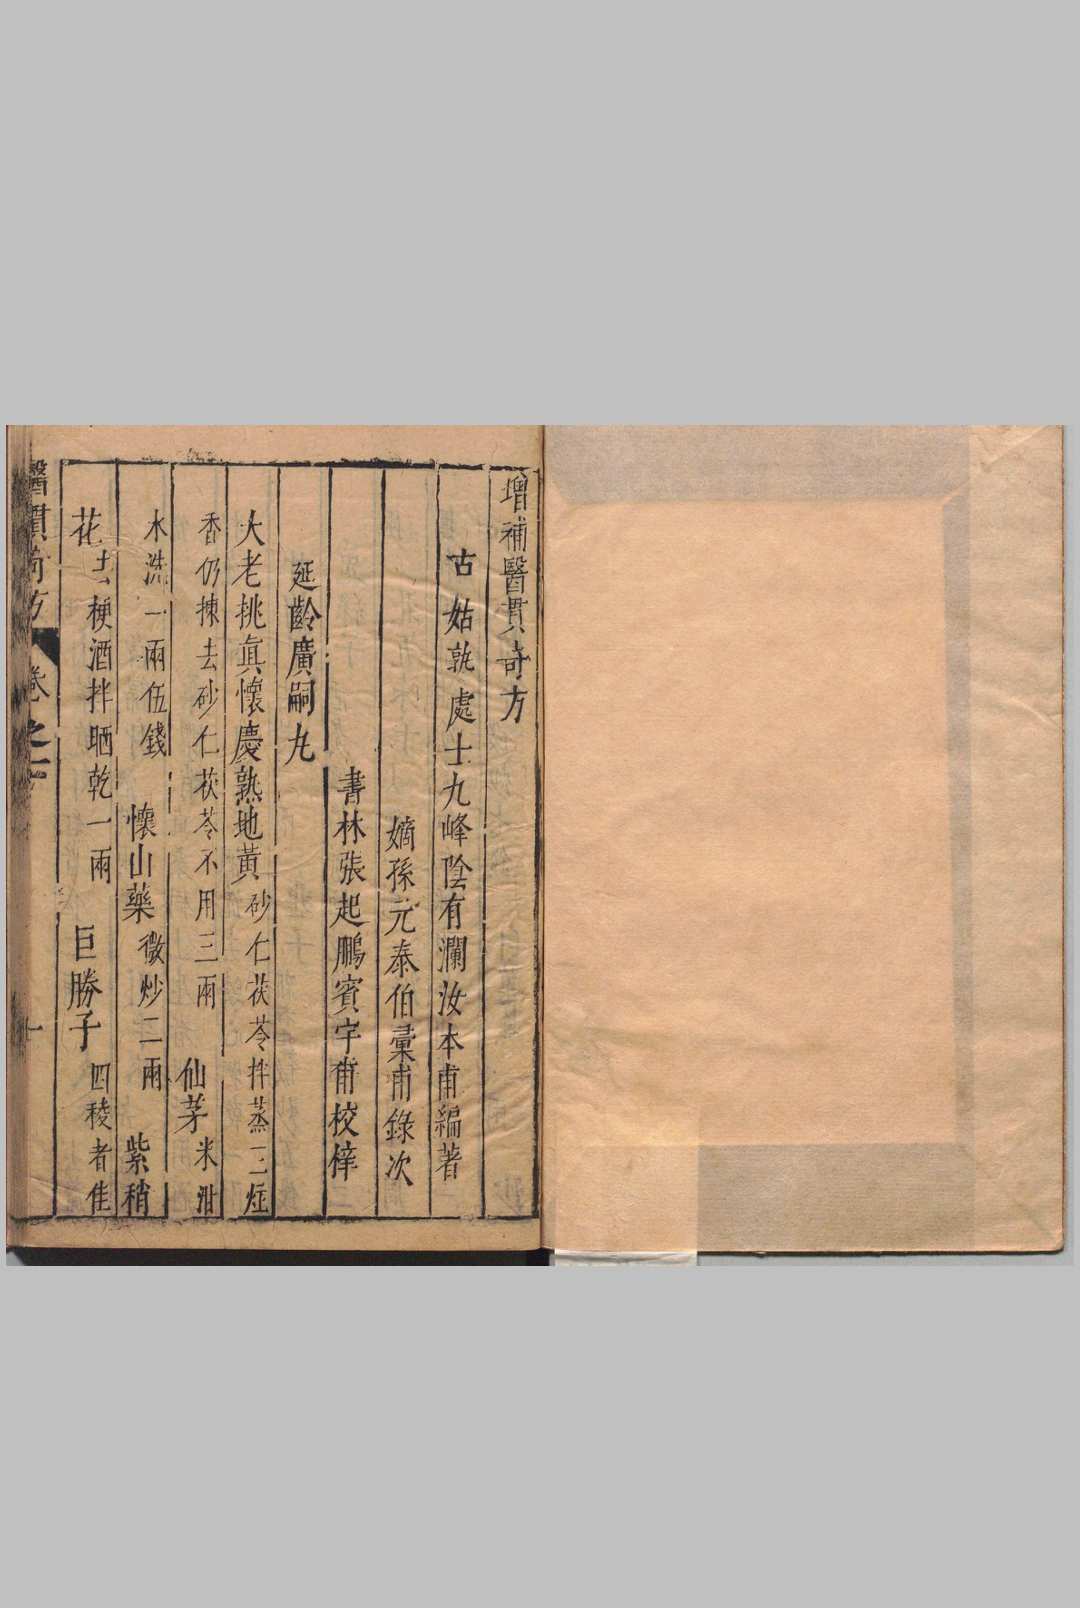 增補醫貫奇方
古姑孰處士九峰陰有瀾汝本甫編著
嫡孫元泰伯彙甫錄次
書林張起鵬賓宇甫校梓
延齡廣嗣丸
大老挑眞懷慶熟地黃砂仁茯苓拌蒸二炷
香仍揀去砂仁茯苓不用三兩 仙茅米泔
水洗一兩伍錢 懷山藥微炒二兩 紫稍
花去梗酒拌晒乾一兩 巨勝子四稜者佳
醫貫奇方 卷之 一